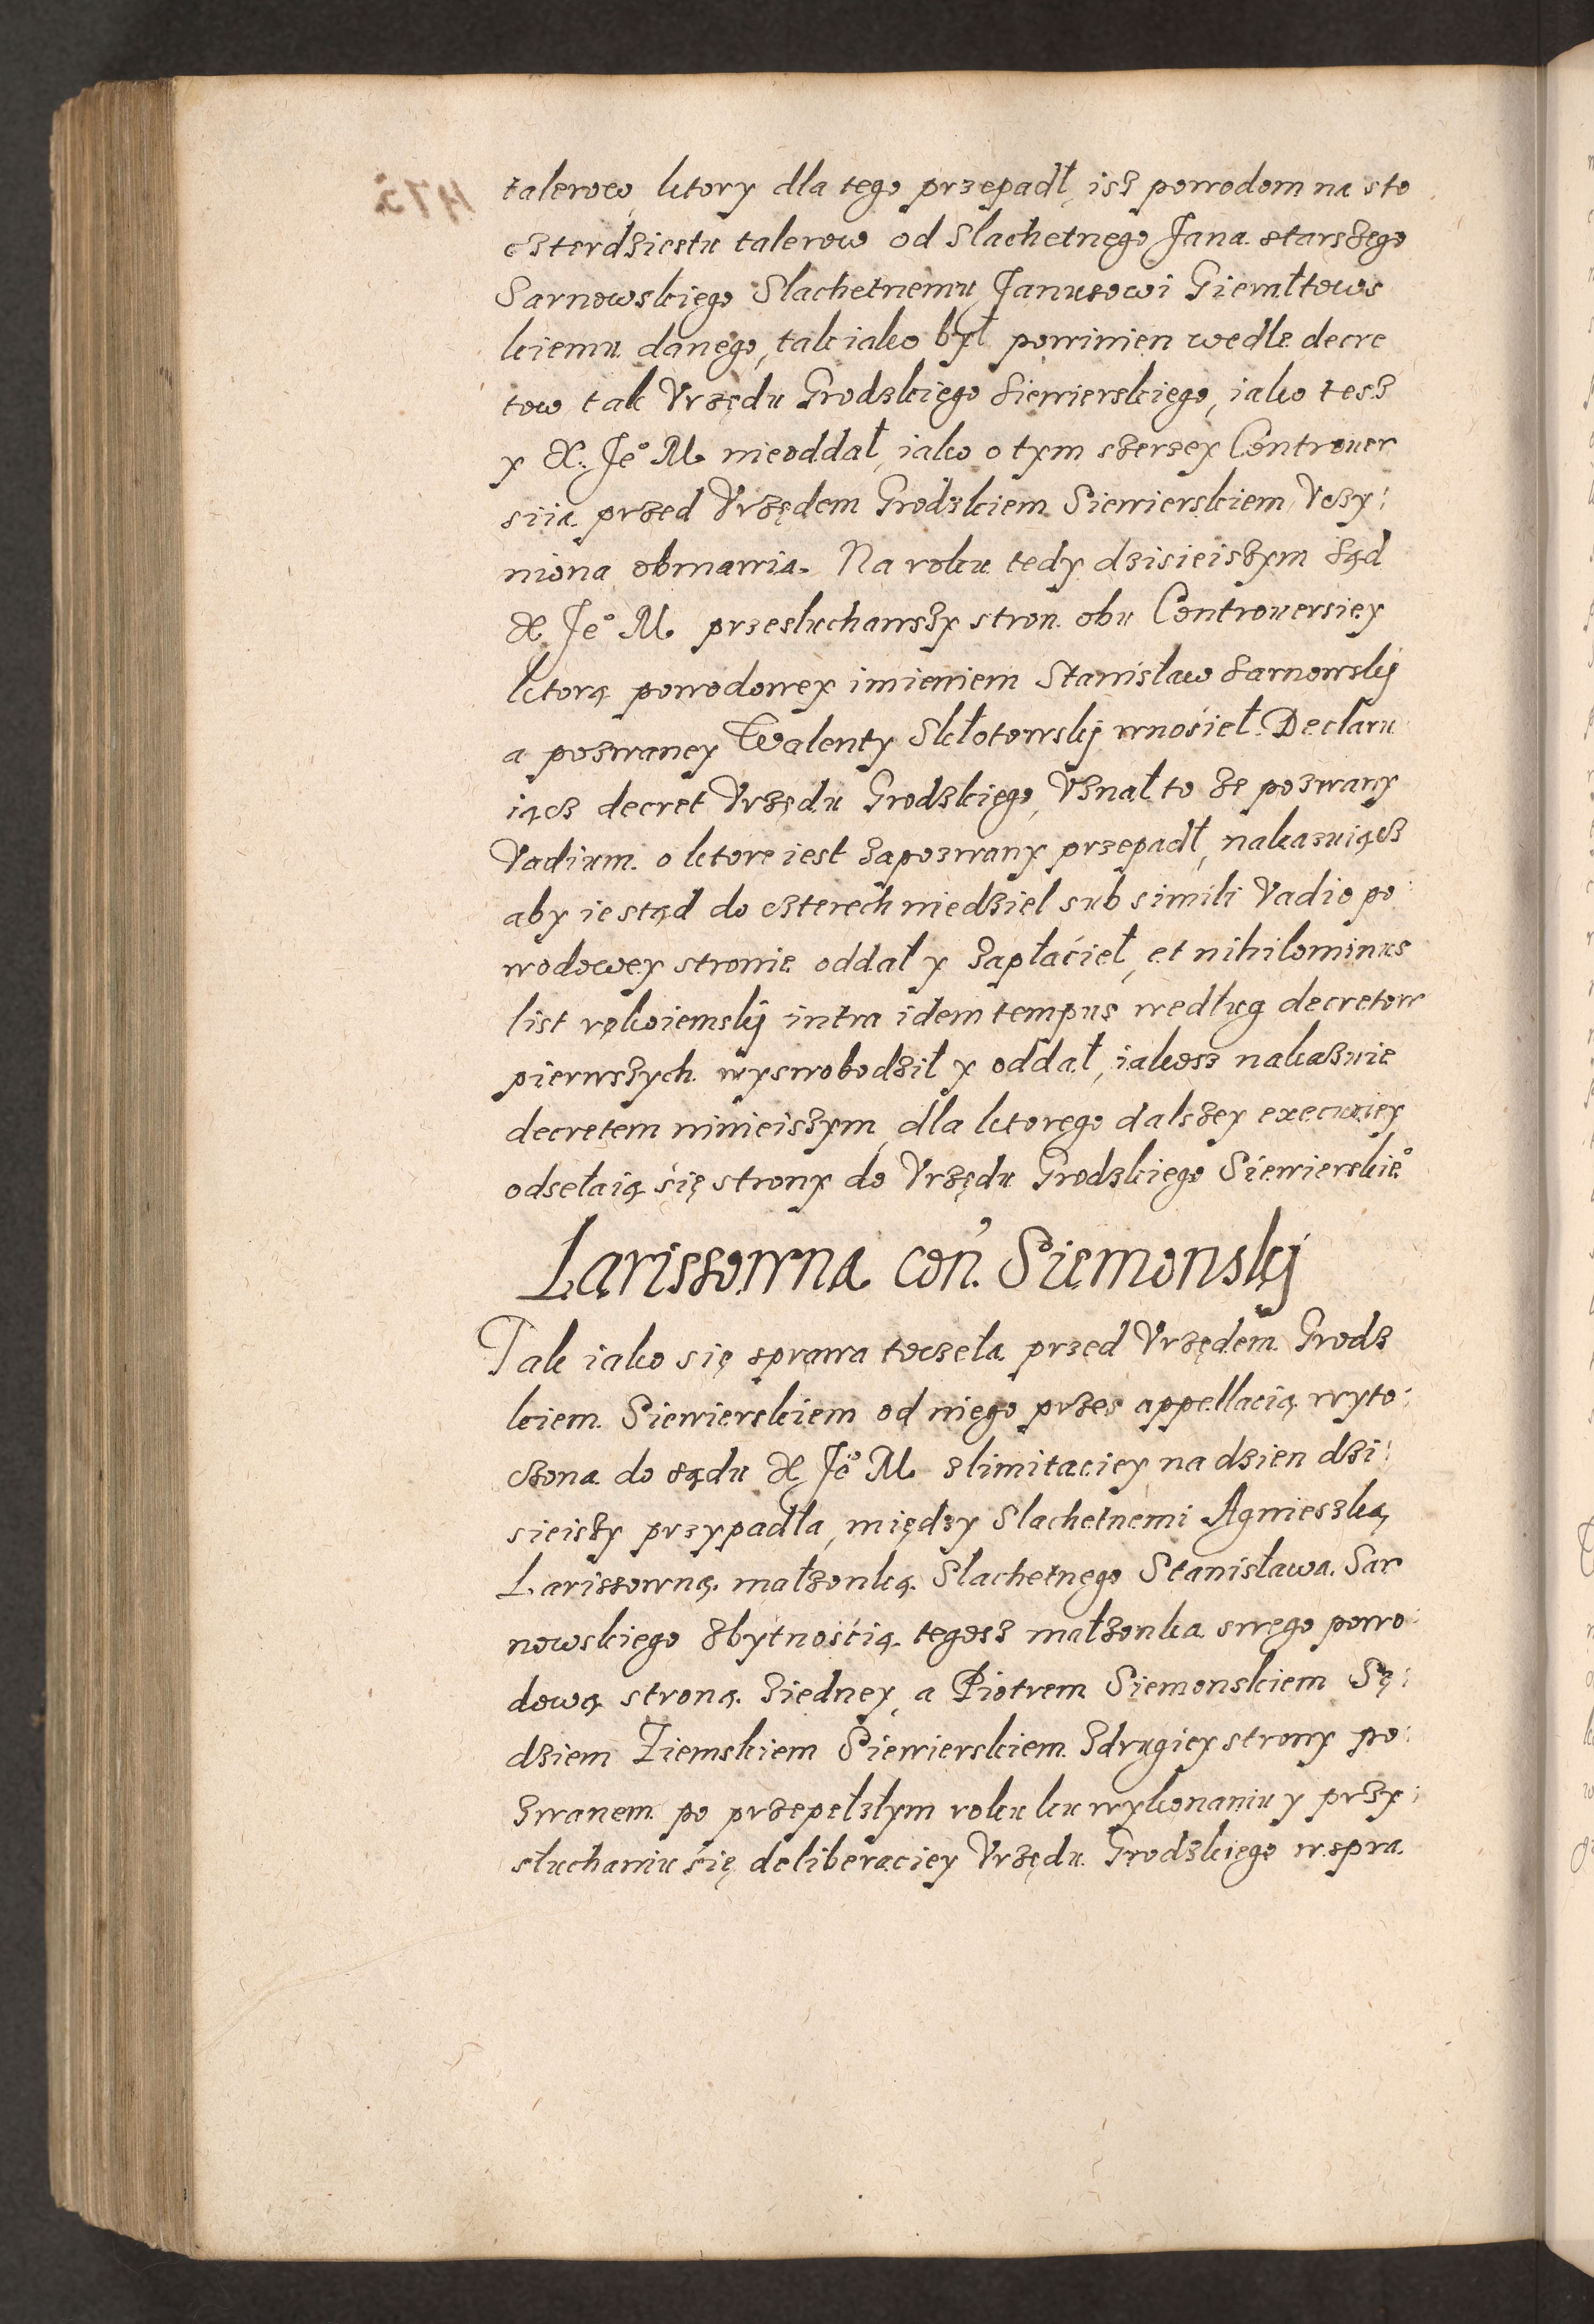 talerow, ktory dla tego przepadł, isz powodom na sto
czterdziestu talerow od Slachetnego Jana starszego
Sarnowskiego Slachetnemu Janusowi Giemłtows
kiemu danego, tak iako był powinien wedle decre
tow tak Vrzędu Grodzkiego Siewierskiego, iako tesz
y X. Je° M. nieoddał, iako o tym szerzey Controuer
siia przed Vrzędem Grodzkiem Siewierskiem Vczy:
niona obmawia. Na roku tedy dzisieiszym Sąd
X. Je° M. przesłuchawszy stron obu Controuersiey
ktorą powodowey imieniem Stanisław Sarnowskij
a pozwaney Walenty Skłotowskij wnosieł. Declaru
iącz decret Vrzędu Grodzkiego, Vznał to ze pozwany
Vadium o ktore iest zapozwany przepadł, nakazuiącz
aby ie stąd do czterech niedziel sub simili Vadio po:
wodowey stronie oddał y zapłacieł, et nihilominus
list rękoiemskij intra idem tempus według decretow
pierwszych wyswobodził y oddał, iakosz nakazuie
decretem ninieiszym, dla ktorego dalszey executiey
odsełaią się strony do Vrzędu Grodzkiego Siewierskie°
Larissowna con. Siemonskij
Tak iako się sprawa toczeła przed Vrzędem Grodz
kiem Siewierskiem od niego przes appellacią wyto:
czona do sądu X. Je° M. z limitaciey na dzien dzi:
sieiszy przypadła, między Slachetnemi Agnieszką
Larissowną małzonką Slachetnego Stanisława Sar
nowskiego zbytnością tegosz małzonka swego powo:
dową stroną ziedney, a Piotrem Siemonskiem Sę:
dziem Ziemskiem Siewierskiem zdrugiey strony po:
zwanem po przepełzłym roku ku wykonaniu y przy:
słuchaniu się deliberaciey Vrzędu Grodzkiego w spra
475.